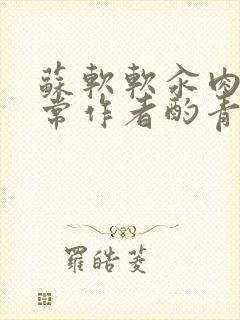 蘇軟軟汆肉
常作者酌青
羅皓菱